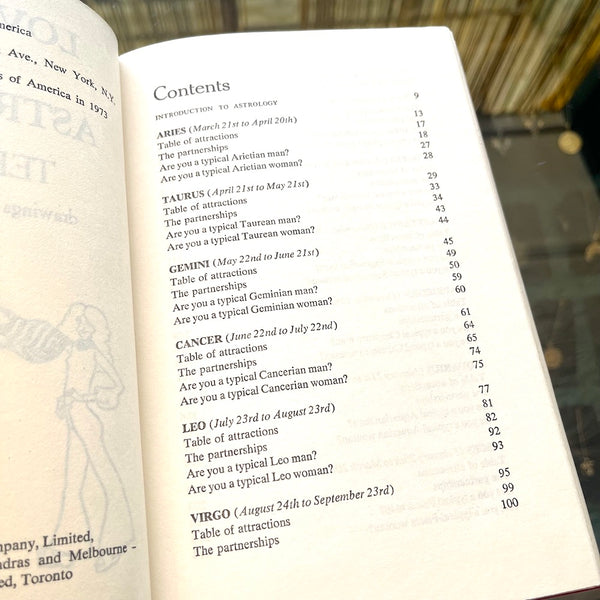 merica
Ave., New York, N.Y.
s of America in 1973
mpany, Limited,
dras and Melbourne -
ed, Toronto
Contents
INTRODUCTION TO ASTROLOGY 9
ARIES (March 21st to April 20th) 13
Table of attractions 17
The partnerships 18
Are you a typical Arietian man? 27
Are you a typical Arietian woman? 28
TAURUS (April 21st to May 21st) 29
Table of attractions 33
The partnerships 34
Are you a typical Taurean man? 43
Are you a typical Taurean woman? 44
GEMINI (May 22nd to June 21st) 45
Table of attractions 49
The partnerships 50
Are you a typical Geminian man? 59
Are you a typical Geminian woman? 60
CANCER (June 22nd to July 22nd) 61
Table of attractions 64
The partnerships 65
Are you a typical Cancerian man? 74
Are you a typical Cancerian woman? 75
LEO (July 23rd to August 23rd) 77
Table of attractions 81
The partnerships 82
Are you a typical Leo man? 92
Are you a typical Leo woman? 93
VIRGO (August 24th to September 23rd) 95
Table of attractions 99
The partnerships 100